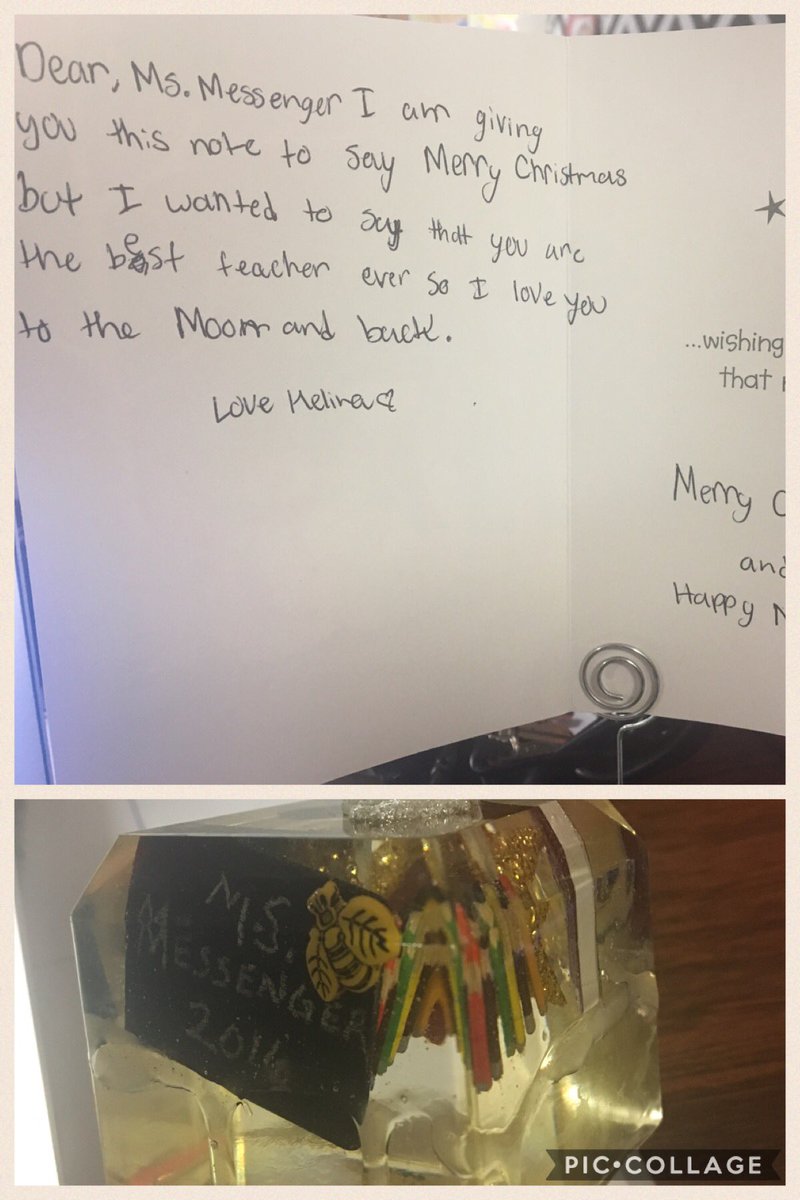 Dear, Ms. Messenger I am giving
you this note to say Merry Christmas
but I wanted to say that you are
the best teacher ever so I love you
to the Moon and back.
Love Melina
...wishing
that
Merry C
and
Happy N
MS.
MESSENGER
2016
PIC•COLLAGE